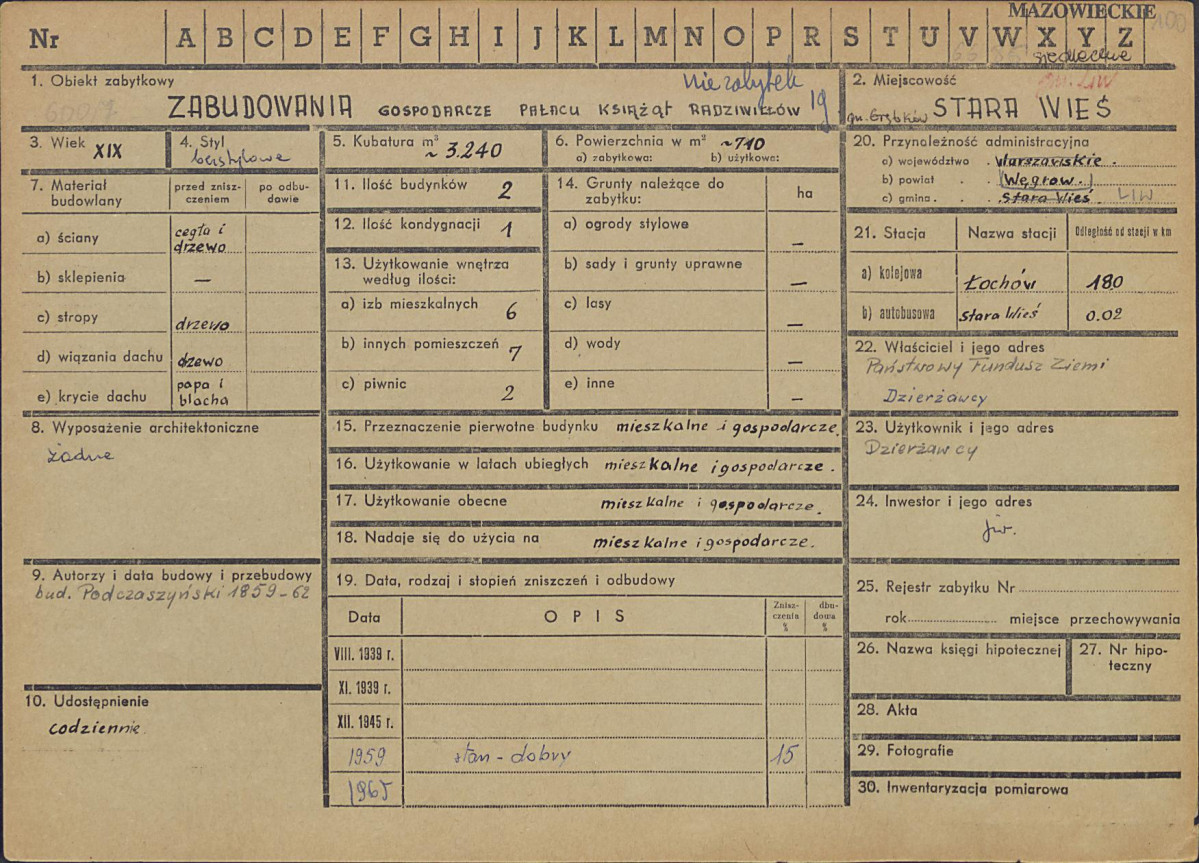 MAZOWIECKIE
Nr A B C D E F G H I J K L M N O P R S T U V W X Y Z
siedleckie
1. Obiekt zabytkowy
nie zabytek
ZABUDOWANIA GOSPODARCZE PAŁACU KSIĄŻĄT RADZIWIŁŁÓW
2. Miejscowość
gm. Liw
gm. Grębków STARA WIEŚ
3. Wiek XIX
4. Styl bezstylowe
5. Kubatura m³ ~ 3.240
6. Powierzchnia w m² ~710
a) zabytkowa: b) użytkowa:
7. Materiał budowlany
przed zniszczeniem
po odbudowie
a) ściany cegła i drzewo
b) sklepienia —
c) stropy drzewo
d) wiązania dachu dzewo
e) krycie dachu papa i blacha
8. Wyposażenie architektoniczne
żadne
9. Autorzy i data budowy i przebudowy
bud. Podczaszyński 1859-62
10. Udostępnienie
codziennie.
11. Ilość budynków 2
12. Ilość kondygnacji 1
13. Użytkowanie wnętrza według ilości:
a) izb mieszkalnych 6
b) innych pomieszczeń 7
c) piwnic 2
14. Grunty należące do zabytku: ha
a) ogrody stylowe —
b) sady i grunty uprawne —
c) lasy —
d) wody —
e) inne —
15. Przeznaczenie pierwotne budynku mieszkalne i gospodarcze.
16. Użytkowanie w latach ubiegłych mieszkalne i gospodarcze.
17. Użytkowanie obecne mieszkalne i gospodarcze.
18. Nadaje się do użycia na mieszkalne i gospodarcze.
19. Data, rodzaj i stopień zniszczeń i odbudowy
Data OPIS Zniszczenia % dbudowa %
VIII. 1939 r.
XI. 1939 r.
XII. 1945 r.
1959 stan - dobry 15
1965
20. Przynależność administracyjna
a) województwo . Warszawskie.
b) powiat . . Węgrow.
c) gmina . . Stara Wieś. LIW
21. Stacja Nazwa stacji Odległość od stacji w km
a) kolejowa Łochów 180
b) autobusowa Stara Wieś 0.02
22. Właściciel i jego adres
Państwowy Fundusz Ziemi
Dzierżawcy
23. Użytkownik i jego adres
Dzierżawcy
24. Inwestor i jego adres
jw.
25. Rejestr zabytku Nr
rok miejsce przechowywania
26. Nazwa księgi hipotecznej
27. Nr hipoteczny
28. Akta
29. Fotografie
30. Inwentaryzacja pomiarowa